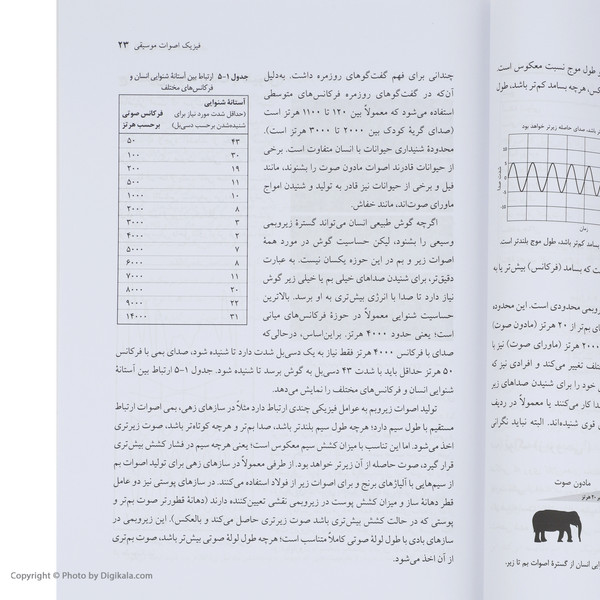 فیزیک اصوات موسیقی ۲۳
چندانی برای فهم گفت‌وگوهای روزمره داشت. به‌دلیل
آن‌که در گفت‌وگوهای روزمره فرکانس‌های متوسطی
استفاده می‌شود که معمولاً بین ۱۲۰ تا ۱۱۰۰ هرتز است
(صدای گریهٔ کودک بین ۲۰۰۰ تا ۳۰۰۰ هرتز است).
محدودهٔ شنیداری حیوانات با انسان متفاوت است. برخی
از حیوانات قادرند اصوات مادون صوت را بشنوند، مانند
فیل و برخی از حیوانات نیز قادر به تولید و شنیدن امواج
ماورای صوت‌اند، مانند خفاش.
اگرچه گوش طبیعی انسان می‌تواند گسترهٔ زیروبمی
وسیعی را بشنود، لیکن حساسیت گوش در مورد همهٔ
اصوات زیر و بم در این حوزه یکسان نیست. به عبارت
دقیق‌تر، برای شنیدن صداهای خیلی بم یا خیلی زیر گوش
نیاز دارد تا صدا با انرژی بیش‌تری به او برسد. بالاترین
حساسیت شنوایی معمولاً در حوزهٔ فرکانس‌های میانی
است؛ یعنی حدود ۴۰۰۰ هرتز. براین‌اساس، درحالی‌که
جدول ۱-۵ ارتباط بین آستانهٔ شنوایی انسان و
فرکانس‌های مختلف
آستانهٔ شنوایی
(حداقل شدت مورد نیاز برای
شنیده‌شدن برحسب دسی‌بل)
فرکانس صوتی
برحسب هرتز
۴۳ ۵۰
۳۰ ۱۰۰
۱۹ ۲۰۰
۱۱ ۵۰۰
۱۰ ۱۰۰۰
۸ ۲۰۰۰
۳ ۳۰۰۰
۲ ۴۰۰۰
۷ ۵۰۰۰
۸ ۶۰۰۰
۱۱ ۷۰۰۰
۲۰ ۸۰۰۰
۲۲ ۹۰۰۰
۳۱ ۱۴۰۰۰
صدای با فرکانس ۴۰۰۰ هرتز فقط نیاز به یک دسی‌بل شدت دارد تا شنیده شود، صدای بمی با فرکانس
۵۰ هرتز حداقل باید با شدت ۴۳ دسی‌بل به گوش برسد تا شنیده شود. جدول ۱-۵ ارتباط بین آستانهٔ
شنوایی انسان و فرکانس‌های مختلف را نمایش می‌دهد.
تولید اصوات زیروبم به عوامل فیزیکی چندی ارتباط دارد مثلاً در سازهای زهی، بمی اصوات ارتباط
مستقیم با طول سیم دارد؛ هرچه طول سیم بلندتر باشد، صدا بم‌تر و هرچه کوتاه‌تر باشد، صوت زیرتری
اخذ می‌شود. اما این تناسب با میزان کشش سیم معکوس است؛ یعنی هرچه سیم در فشار کشش بیش‌تری
قرار گیرد، صوت حاصله از آن زیرتر خواهد بود. از طرفی معمولاً در سازهای زهی برای تولید اصوات بم
از سیم‌هایی با آلیاژهای برنج و برای اصوات زیر از فولاد استفاده می‌کنند. در سازهای پوستی نیز دو عامل
قطر دهانهٔ ساز و میزان کشش پوست در زیروبمی نقشی تعیین‌کننده دارند (دهانهٔ قطورتر صوت بم‌تر و
پوستی که در حالت کشش بیش‌تری باشد صوت زیرتری حاصل می‌کند و بالعکس). این زیروبمی در
سازهای بادی با طول لولهٔ صوتی کاملاً متناسب است؛ هرچه طول لولهٔ صوتی بیش‌تر باشد، صوت بم‌تری
از آن اخذ می‌شود.
و طول موج نسبت معکوس است.
کس، هرچه بسامد کم‌تر باشد، طول
باشد، صدای حاصله زیرتر خواهد بود
شدت صدا
10
5
0
-5
-10
زمان
بسامد کم‌تر باشد، طول موج بلندتر است.
ست که بسامد (فرکانس) بیش‌تر یا به
وبمی محدودی است. این محدوده،
ای بم‌تر از ۲۰ هرتز (مادون صوت)
۲۰۰۰ هرتز (ماورای صوت) نیز با
تلف تغییر می‌کند و افرادی نیز که
خود را برای شنیدن صداهای زیر
دا کار می‌کنند یا معمولاً در ردیف
قوی شنیده‌اند. البته نباید نگرانی
مادون صوت
۲۰ هرتز
وایی انسان از گسترهٔ اصوات بم تا زیر.
Copyright © Photo by Digikala.com